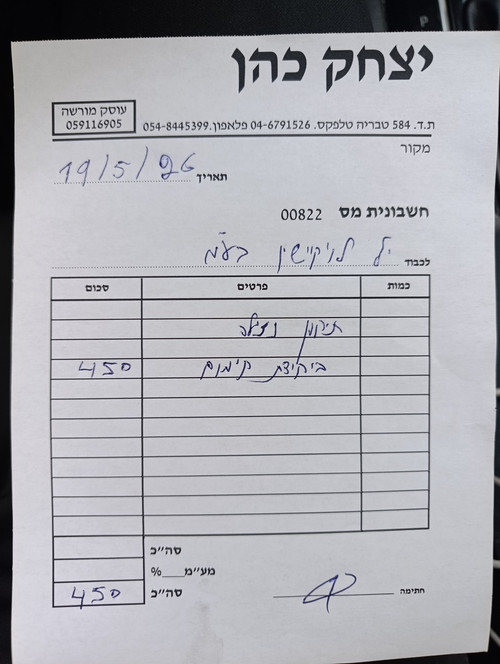 יצחק כהן
עוסק מורשה
059116905
ת.ד. 584 טבריה טלפקס. 04-6791526 פלאפון. 054-8445399
מקור
תאריך 19/5/26
חשבונית מס 00822
לכבוד יל לוקיישין בע"מ
כמות פרטים סכום
תיקון נזילה
ביקיצת קימום 450
סה"כ
מע"מ___%
סה"כ 450
חתימה